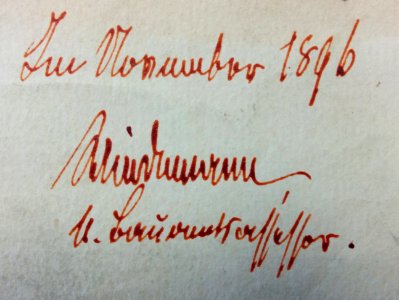 Im November 1896
K. Bauamtsassessor.